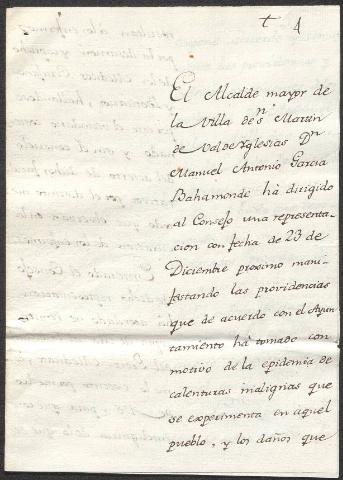 + 4
El Alcalde mayor de
la Villa de Sn. Martin
de Valdeyglesias Dn
Manuel Antonio Garcia
Bahamonde há dirigido
al Consejo una representa-
cion con fecha de 23 de
Diciembre proximo mani-
festando las providencias
que de acuerdo con el Ayun-
tamiento há tomado con
motivo de la epidemia de
calenturas malignas que
se experimenta en aquel
pueblo, y los daños que